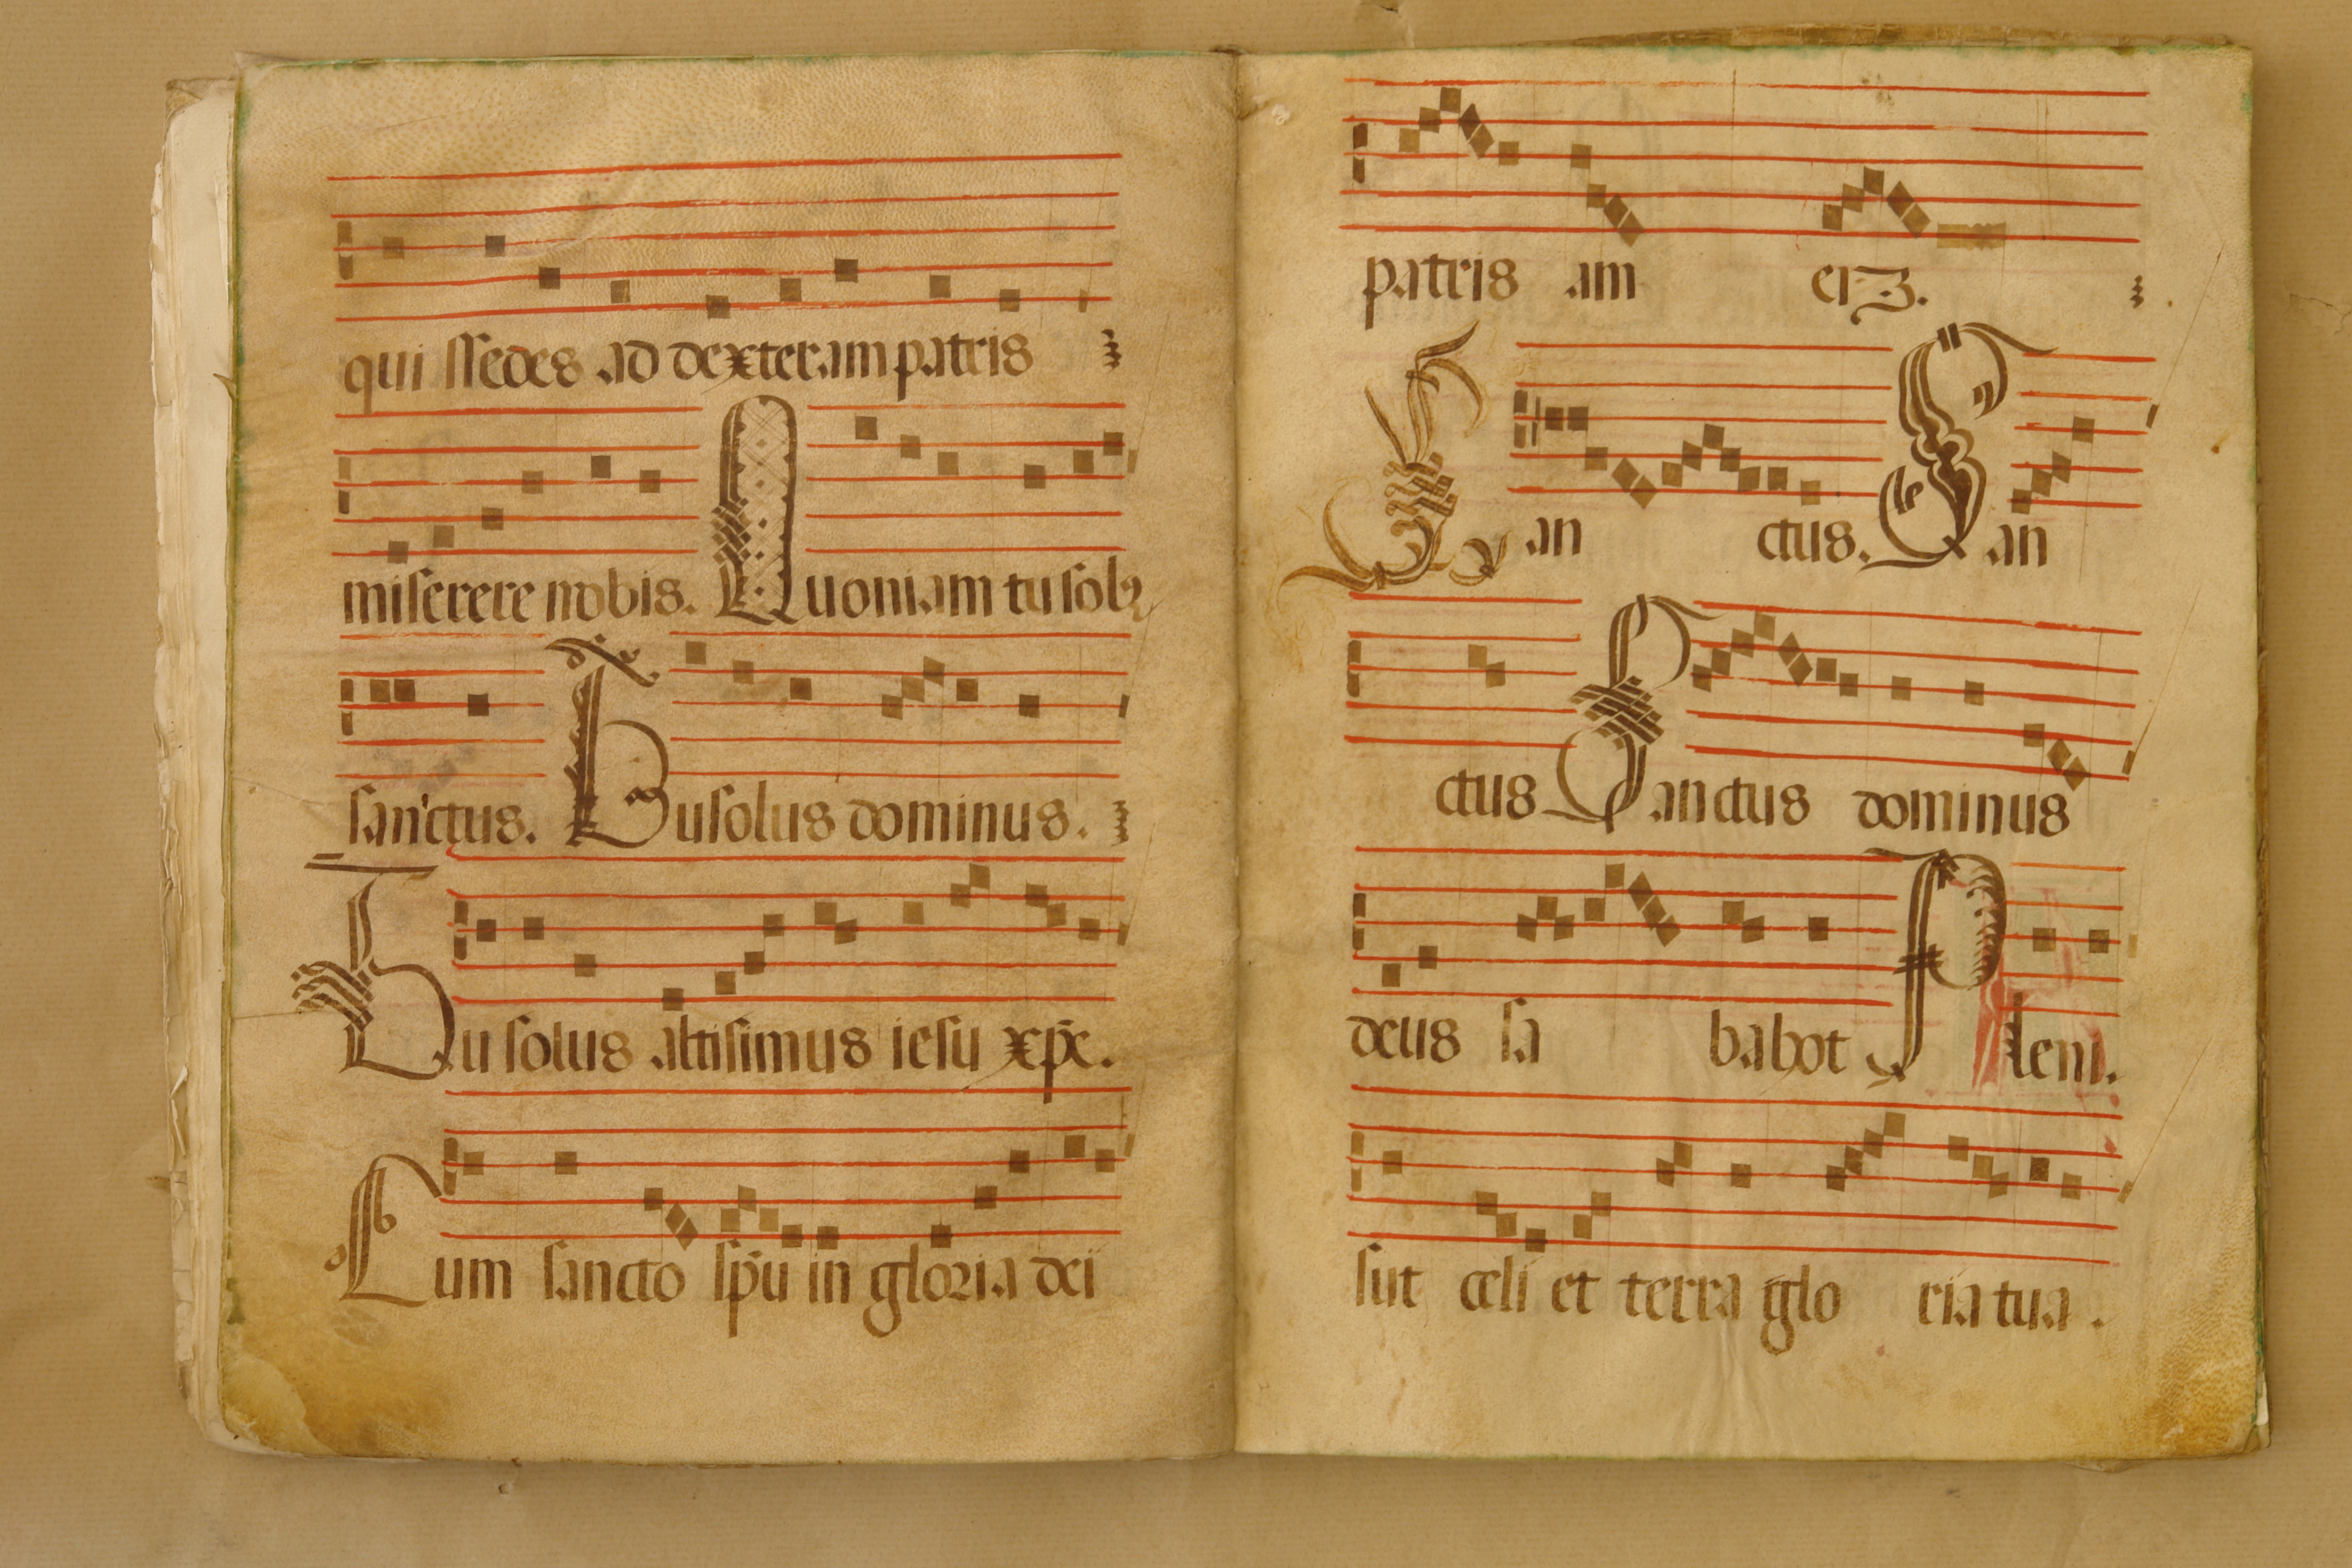 qui ſſedes ad dexteram patris
miſerere nobis. Quoniam tu ſolꝰ
ſanctus. Tu ſolus dominus.
Tu ſolus altiſimus ieſu xp̄e.
Cum ſancto ſp̄u in gloria dei
patris am en.
San ctus. San
ctus Sanctus dominus
deus ſa babot Pleni.
ſut celi et terra glo ria tua.